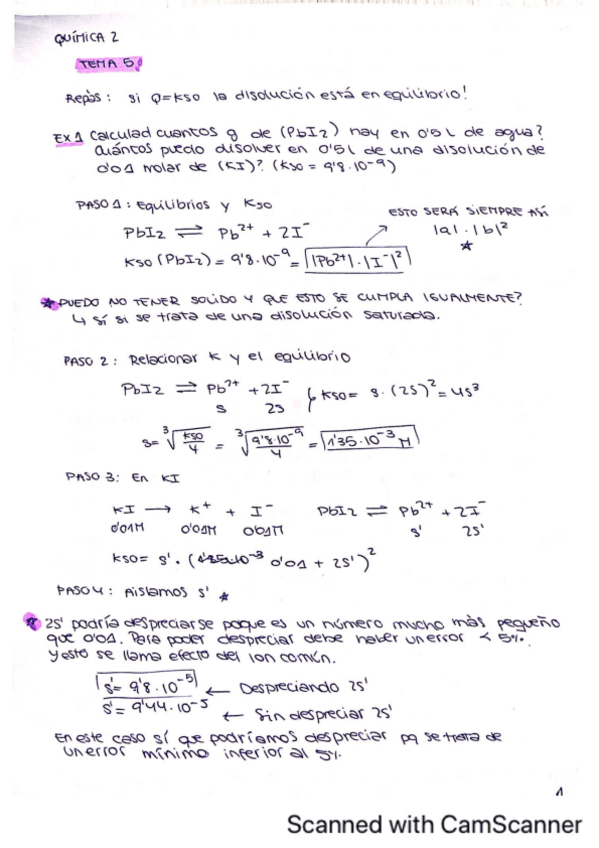 QUÍMICA 2
TEMA 5
Repàs: si Q=KSO la disolución está en equilibrio!
EX1 Calculad cuantos g de (PbI2) hay en 0'5 L de agua?
Cuántos puedo disolver en 0'5L de una disolución de
0'01 molar de (KI)? (KSO = 9'8·10⁻⁹)
PASO 1: Equilibrios y KSO
ESTO SERÁ SIEMPRE ASÍ
PbI2 ⇌ Pb²⁺ + 2I⁻
|a|·|b|²
KSO (PbI2) = 9'8·10⁻⁹ = |Pb²⁺|·|I⁻|²
★
★ PUEDO NO TENER SOLIDO Y QUE ESTO SE CUMPLA IGUALMENTE?
↳ Sí si se trata de una disolución saturada.
PASO 2: Relacionar K y el equilibrio
PbI2 ⇌ Pb²⁺ + 2I⁻ KSO = s·(2S)² = 4S³
s 2s
s = ³√(KSO/4) = ³√(9'8·10⁻⁹/4) = 1'35·10⁻³ M
PASO 3: En KI
KI → K⁺ + I⁻ PbI2 ⇌ Pb²⁺ + 2I⁻
0'01M 0'01M 0'01M s' 2s'
KSO = s'·(0'01 + 2s')²
PASO 4: Aislamos s' ★
★ 2s' podría despreciarse poque es un número mucho màs pequeño
que 0'01. Para poder despreciar debe haber un error < 5%.
Y esto se llama efecto del ion común.
s' = 9'8·10⁻⁵ ← Despreciando 2s'
s' = 9'44·10⁻⁵ ← Sin despreciar 2s'
En este caso sí que podríamos despreciar pq se trata de
un error mínimo inferior al 5%.
1
Scanned with CamScanner